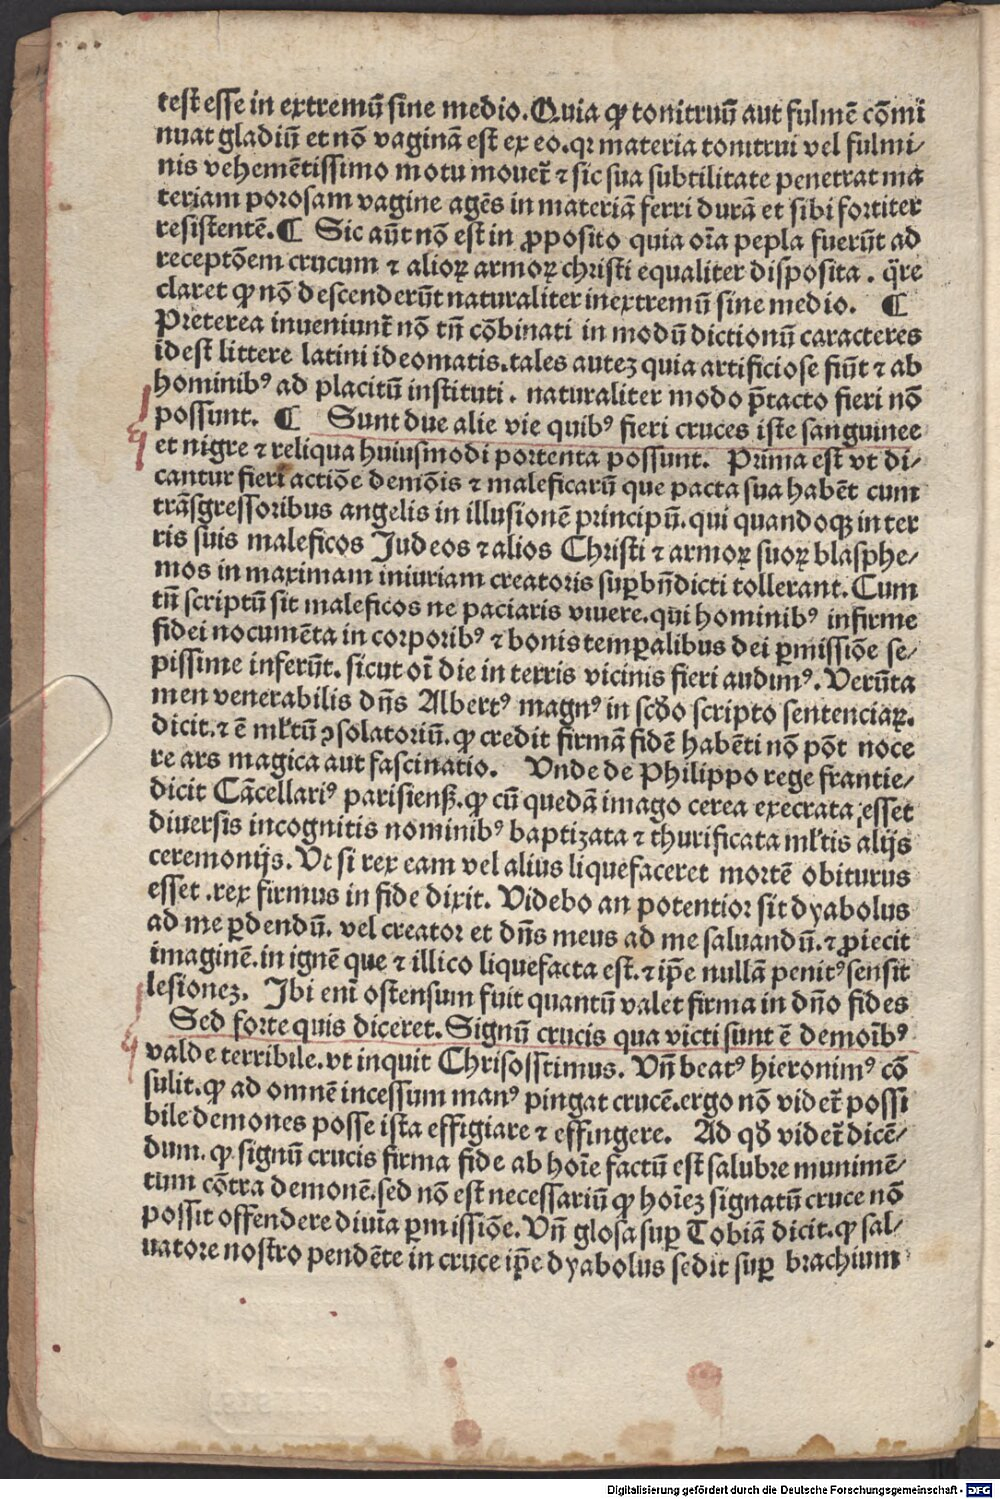 test esse in extremū sine medio. Quia ꝙ tonitruū aut fulmē cōmi
nuat gladiū et nō vaginā est ex eo. qꝛ materia tonitrui vel fulmi⸗
nis vehemētissimo motu mouet᷑ ⁊ sic sua subtilitate penetrat ma
teriam porosam vagine agēs in materiā ferri durā et sibi fortiter
resistentē. ¶ Sic aūt nō est in ꝓposito quia oīa pepla fuerūt ad
receptōem crucum ⁊ alioꝝ armoꝝ christi equaliter disposita. q̄re
claret ꝙ nō descenderūt naturaliter in extremū sine medio. ¶
Preterea inueniunt᷑ nō tn̄ cōbinati in modū dictionū caracteres
id est littere latini ideomatis. tales autez quia artificiose fiūt ⁊ ab
hominibꝰ ad placitū instituti. naturaliter modo p̄tacto fieri nō
possunt. ¶ Sunt due alie vie quibꝰ fieri cruces iste sanguinee
et nigre ⁊ reliqua huiusmodi portenta possunt. Prima est vt di⸗
cantur fieri actiōe demōis ⁊ maleficarū que pacta sua habēt cum
trāsgressoribus angelis in illusionē principū. qui quandoqꝫ in ter
ris suis maleficos Judeos ⁊ alios Christi ⁊ armoꝝ suoꝝ blasphe⸗
mos in maximam iniuriam creatoris suꝑbn̄dicti tollerant. Cum
tn̄ scriptū sit maleficos ne paciaris viuere. qui hominibꝰ infirme
fidei nocumēta in corporibꝰ ⁊ bonis temꝑalibus dei ꝑmissiōe se⸗
pissime inferūt. sicut oī die in terris vicinis fieri audimꝰ. Verūta
men venerabilis dn̄s Albertꝰ magnꝰ in scd̄o scripto sentenciaꝝ.
dicit. ⁊ ē ml̄tū ꝯsolatoriū. ꝙ credit firmā fidē habēti nō pōt noce
re ars magica aut fascinatio. Unde de Philippo rege frantie⸗
dicit Cācellariꝰ parisiensꝭ. ꝙ cū quedā imago cerea execrata esset
diuersis incognitis nominibꝰ baptizata ⁊ thurificata ml̄tis alijs
ceremonijs. Vt si rex eam vel alius liquefaceret mortē obiturus
esset. rex firmus in fide dixit. Videbo an potentior sit dyabolus
ad me ꝑdendū. vel creator et dn̄s meus ad me saluandū. ⁊ ꝓiecit
imaginē. in ignē que ⁊ illico liquefacta est. ⁊ ip̄e nullā penitꝰ sensit
lesionez. Ibi eni ostensum fuit quantū valet firma in dn̄o fides
Sed forte quis diceret. Signū crucis qua victi sunt ē demoībꝰ
valde terribile. vt inquit Chrisosstimus. Un̄ beatꝰ hieronimꝰ cō
sulit. ꝙ ad omnē incessum manꝰ pingat crucē. ergo nō videt᷑ possi
bile demones posse ista effigiare ⁊ effingere. Ad qd̄ videt᷑ dicē⸗
dum. ꝙ signū crucis firma fide ab hoīe factū est salubre munimē⸗
tum cōtra demonē. sed nō est necessariū ꝙ hoīez signatū cruce nō
possit offendere diuīa ꝑmissiōe. Un̄ glosa suꝑ Tobiā dicit. ꝙ sal⸗
uatore nostro pendēte in cruce ip̄e dyabolus sedit suꝑ brachium
Digitalisierung gefördert durch die Deutsche Forschungsgemeinschaft - DFG